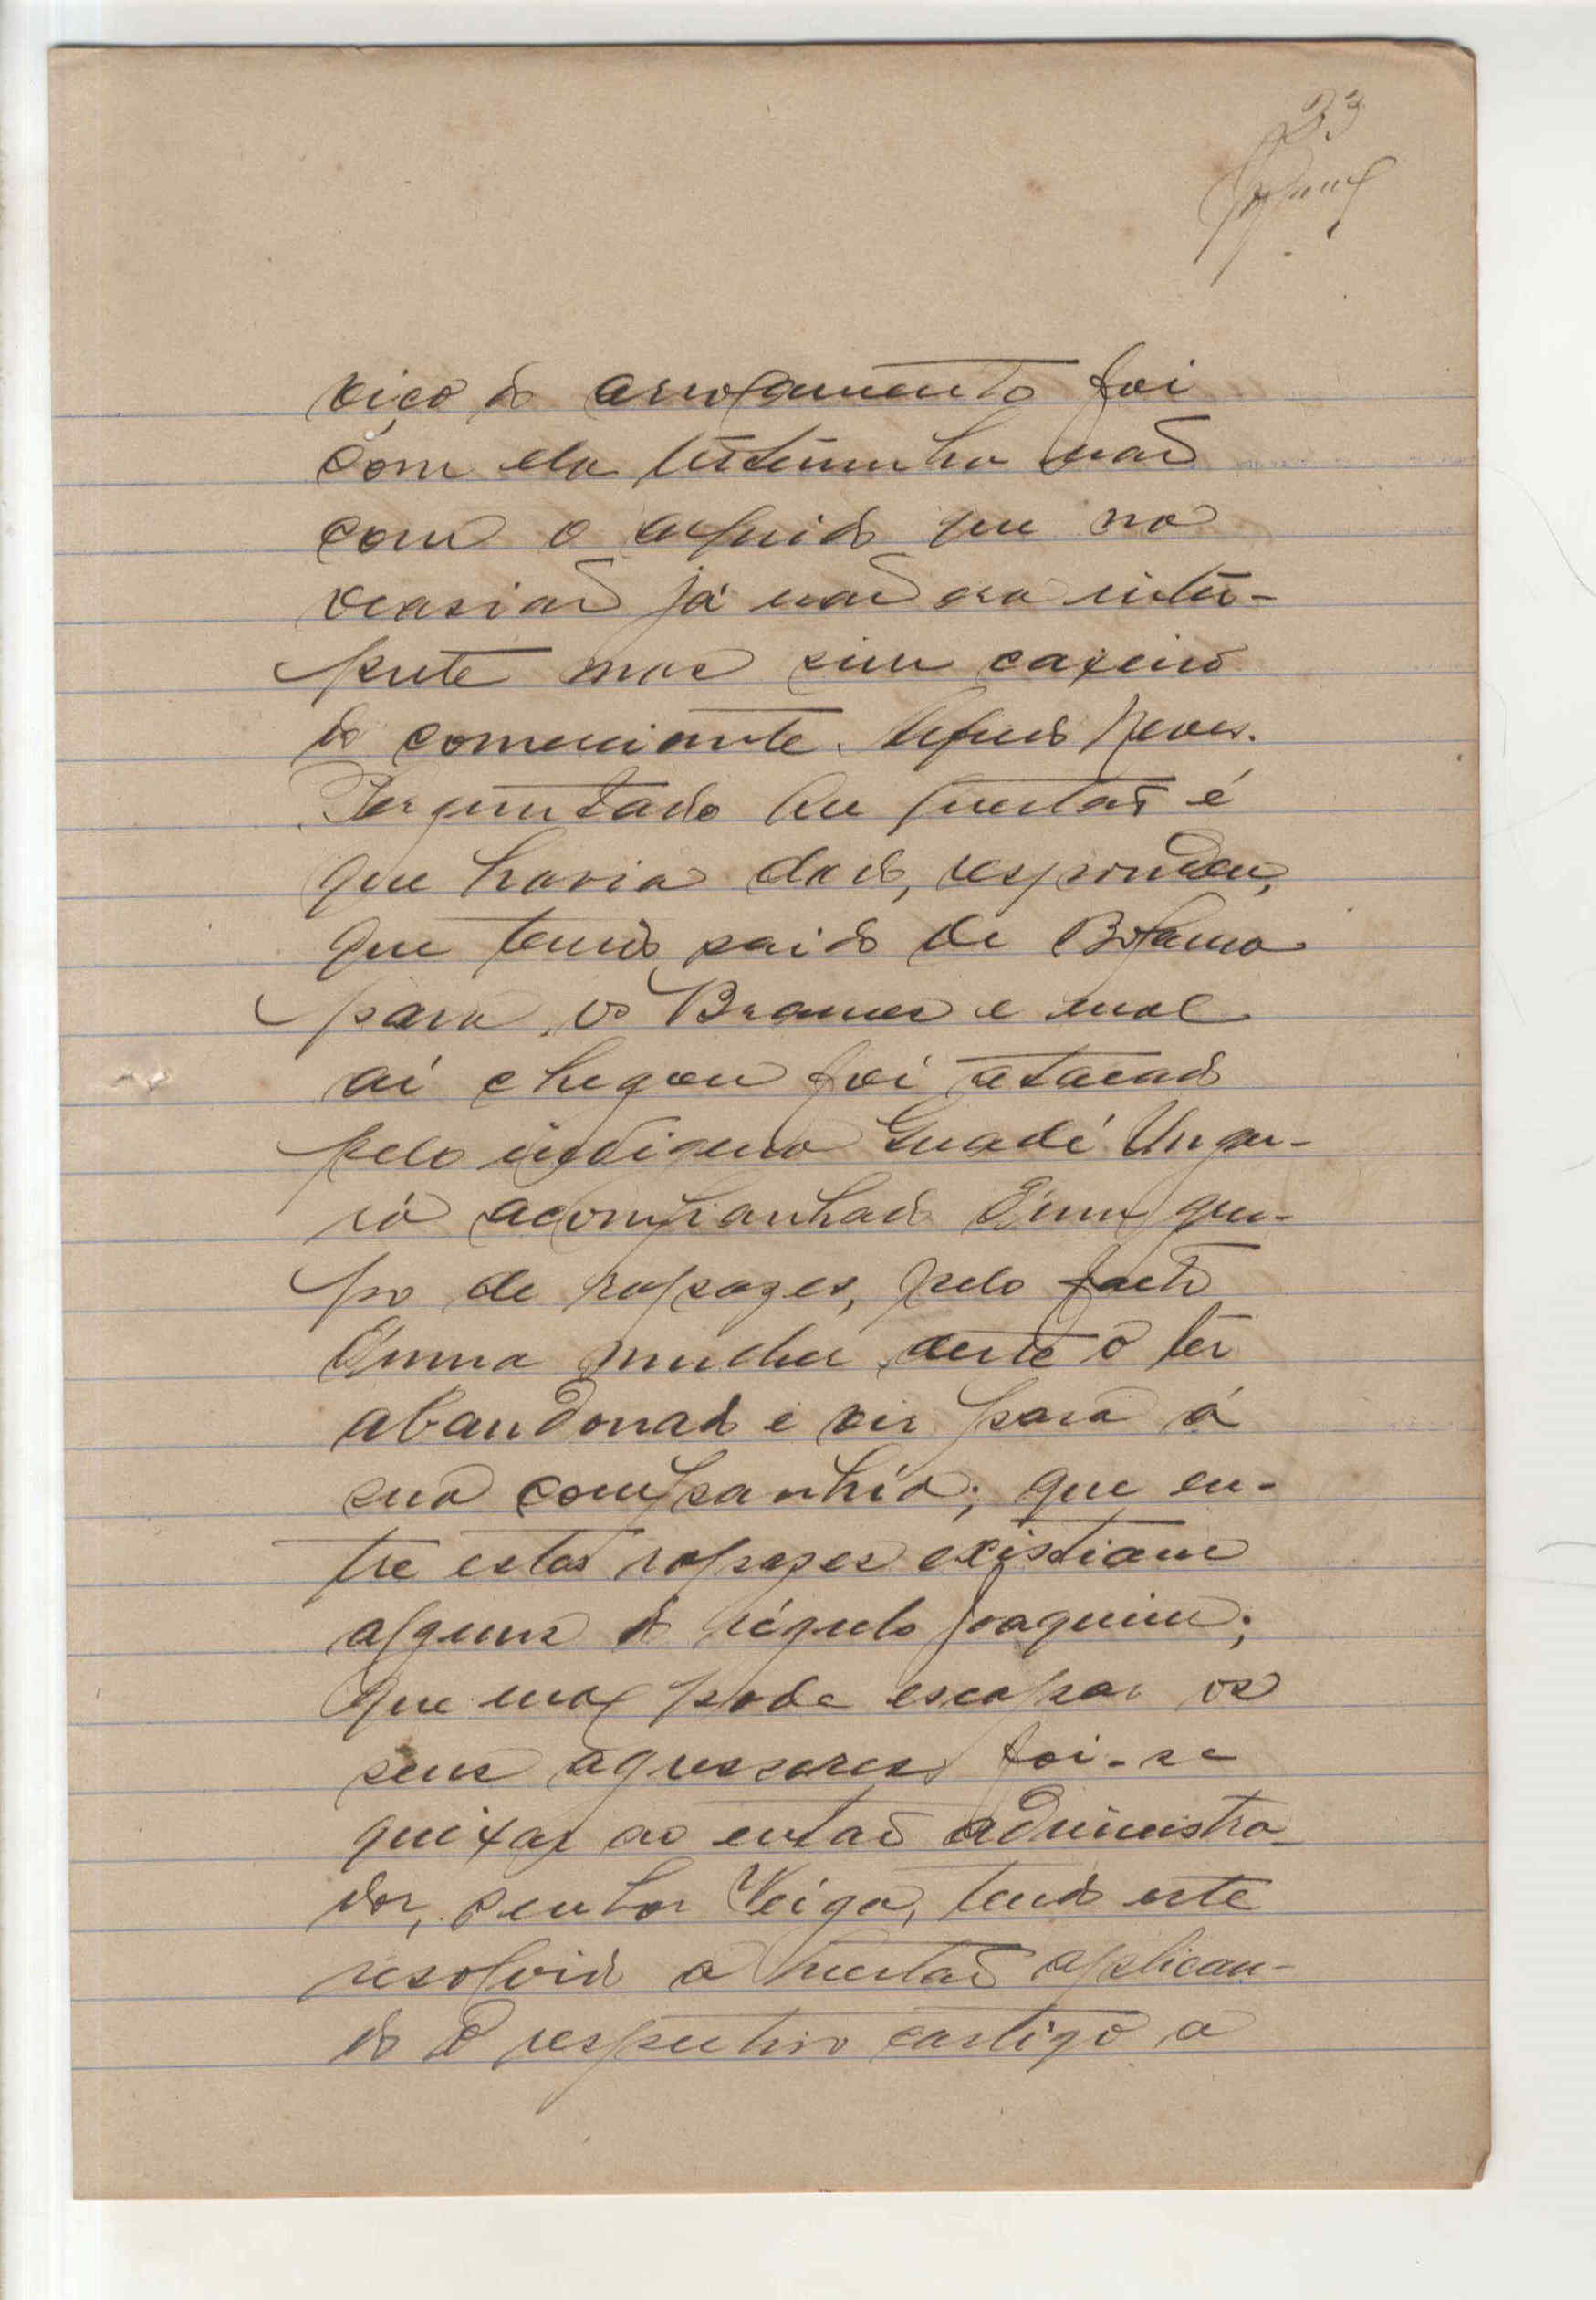 33
viço do arrolamento foi
com ela testemunha não
com o arguido que na
ocasião já não era intér-
prete mas sim caxeiro
do comerciante Neves.
Perguntado que questão é
que havia dado, respondeu,
que tendo saido de Bolama
para os Brames e mal
aí chegou foi atacado
pelo indigena Guadé Ungu-
ró acompanhado d'um gru-
po de rapazes, pelo facto
d'uma mulher deste o ter
abandonado e vir para á
sua companhia; que en-
tre estes rapazes existiam
alguns do régulo Joaquim;
que mal pode escapar os
seus agressores foi-se
queixar ao então administra-
dor, senhor Veiga, tendo este
resolvido a questão aplican-
do o respectivo castigo a